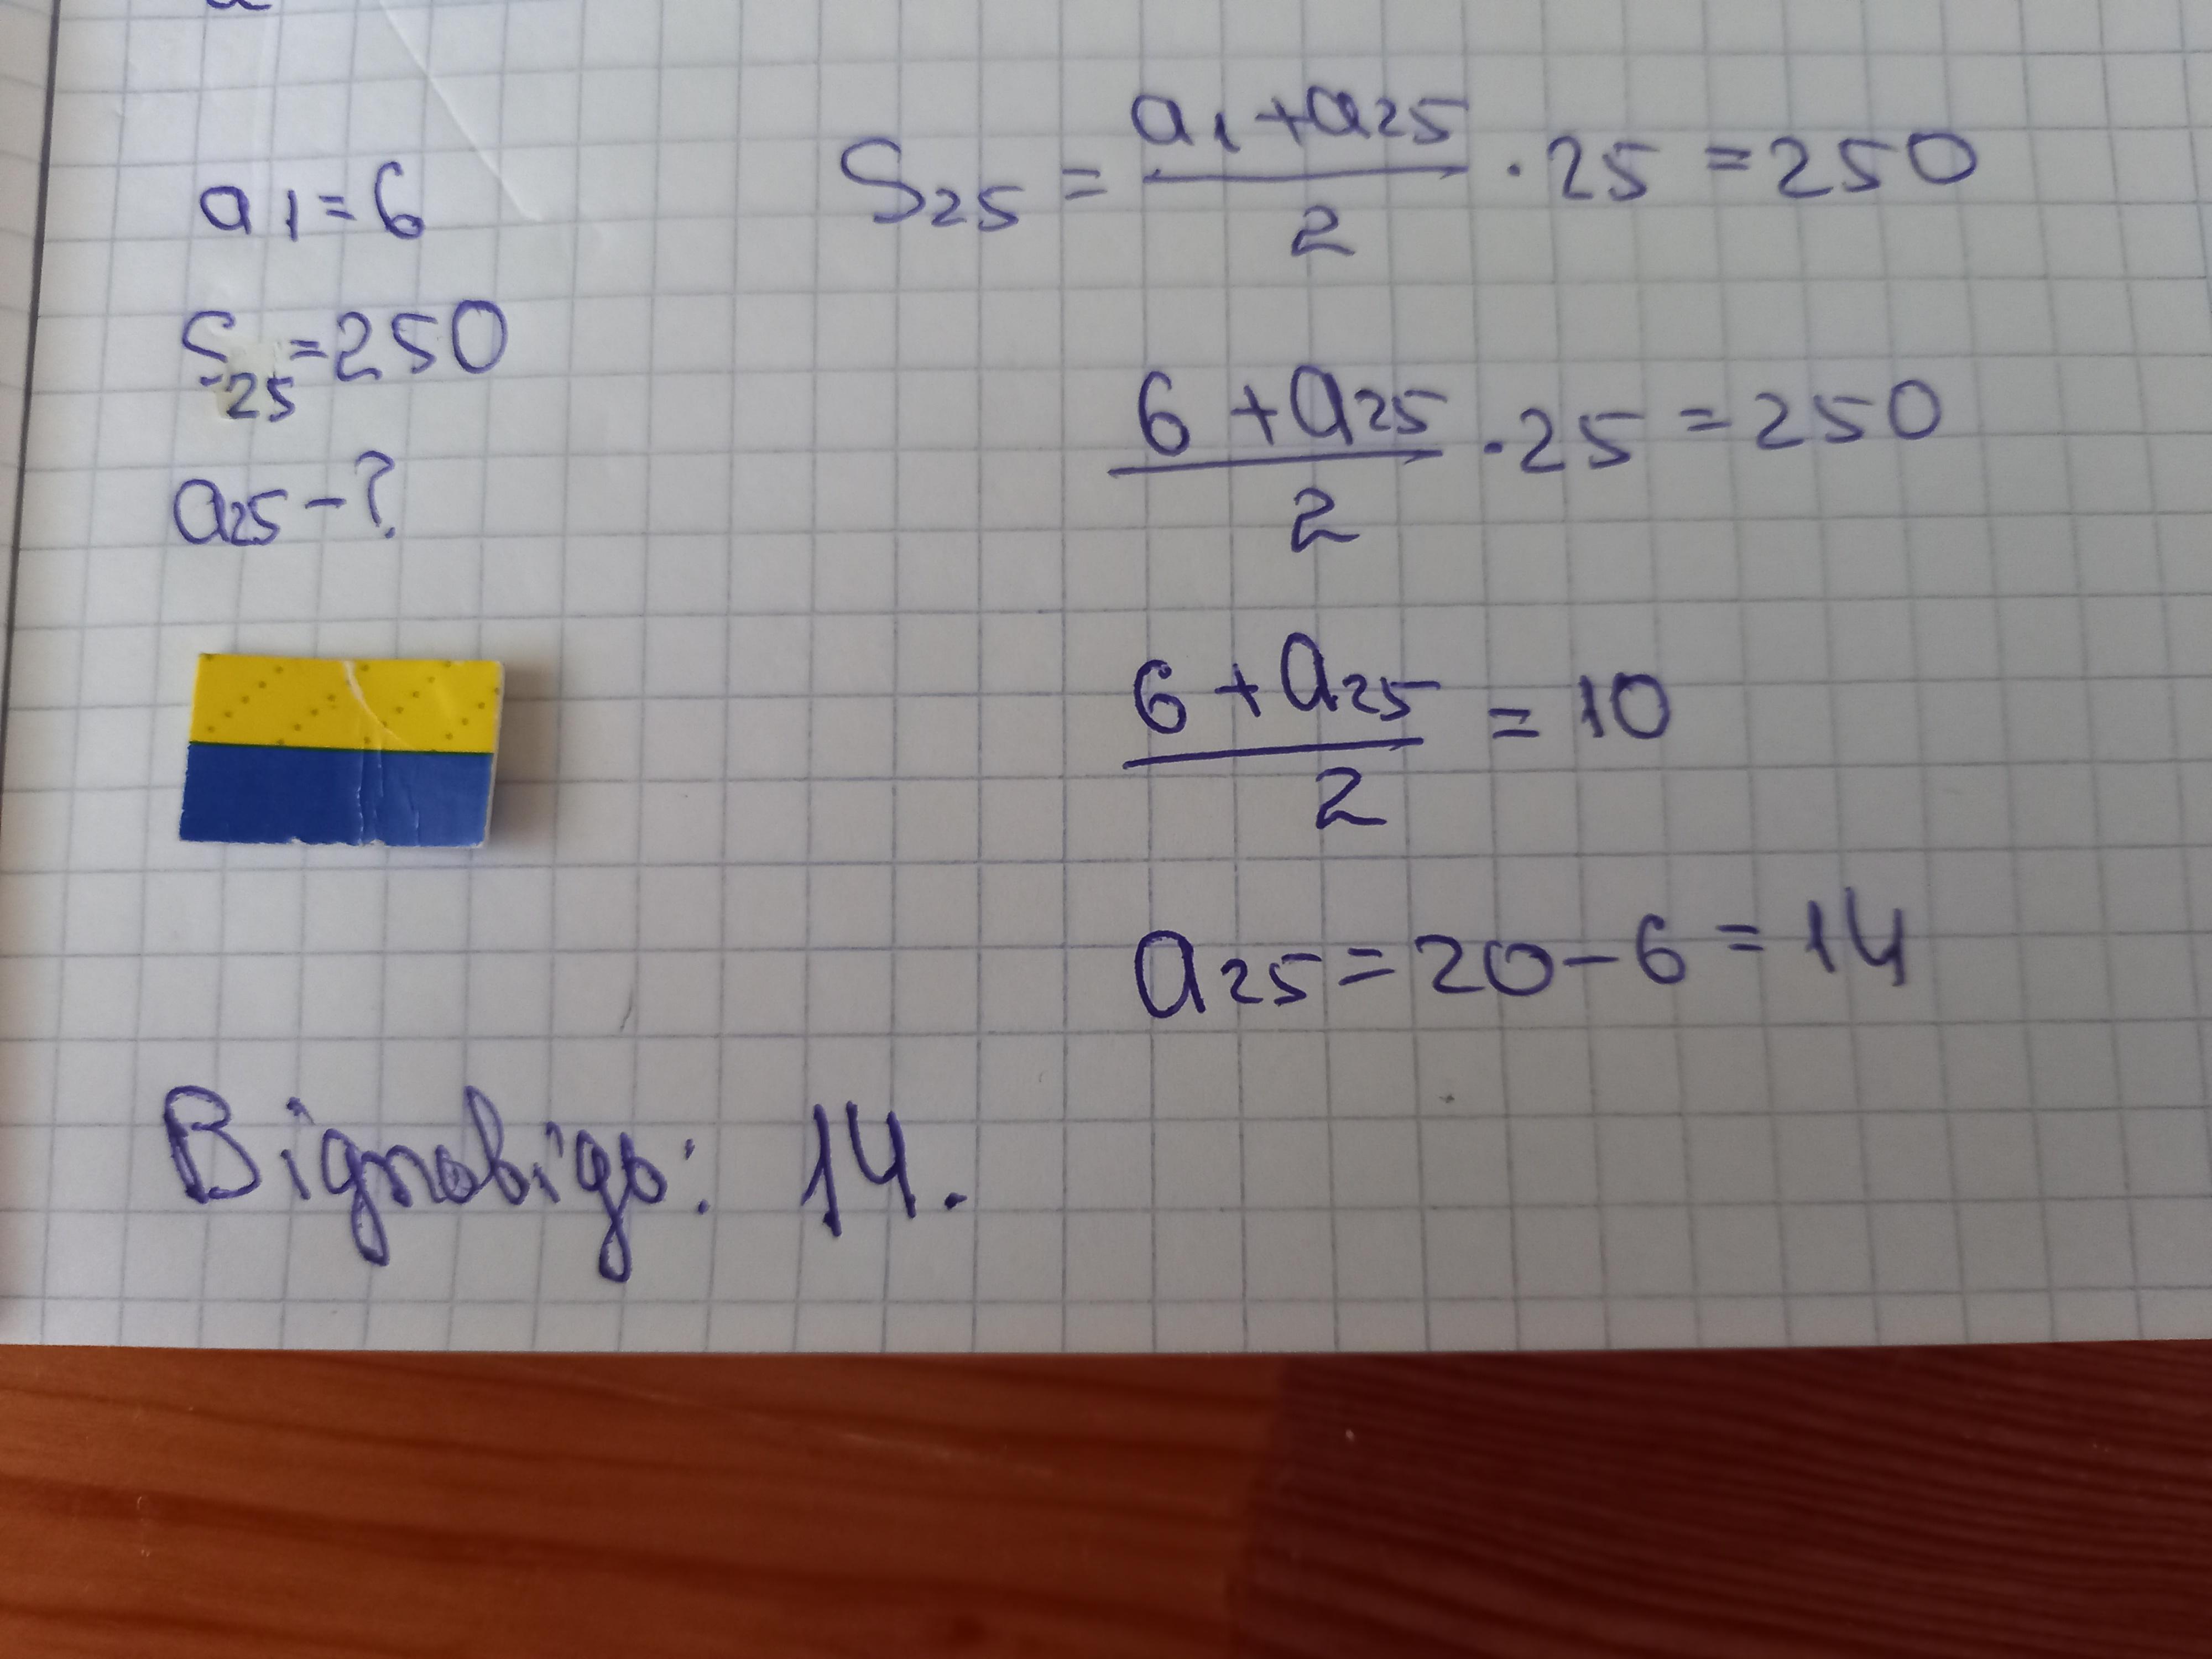 a₁ = 6
S₂₅ = 250
a₂₅ - ?
S₂₅ = (a₁ + a₂₅)/2 · 25 = 250
(6 + a₂₅)/2 · 25 = 250
(6 + a₂₅)/2 = 10
a₂₅ = 20 - 6 = 14
Відповідь: 14.